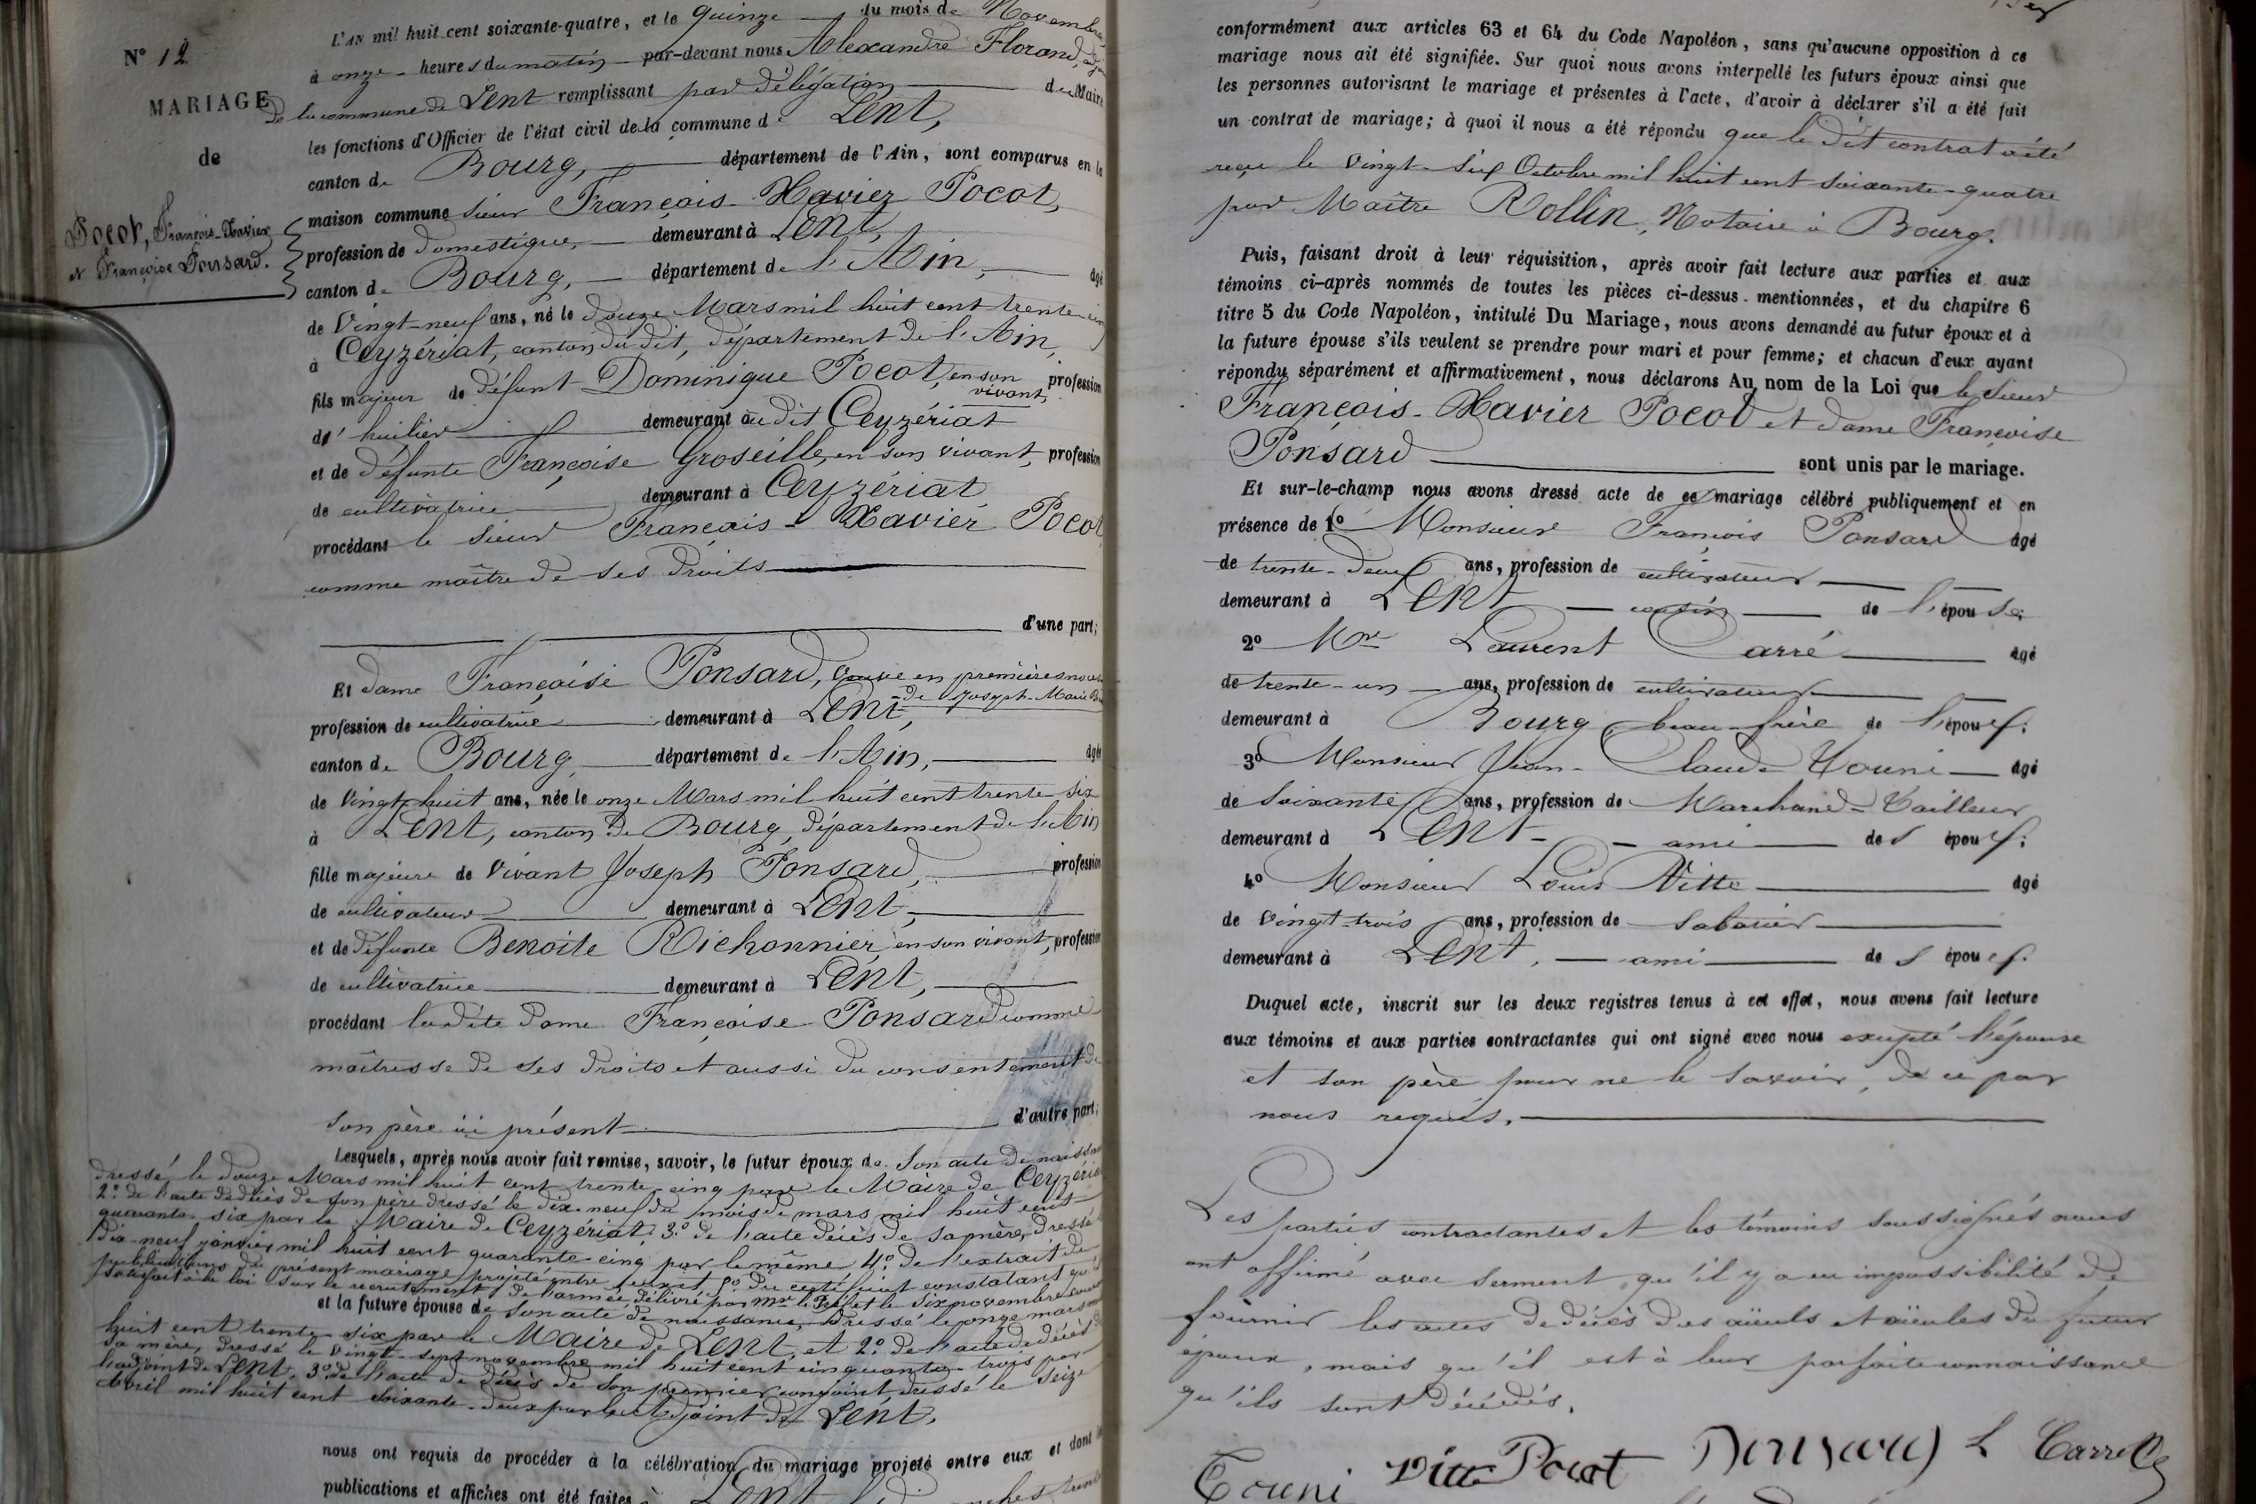 N° 12
MARIAGE
de
Pocot, François-Xavier
et Françoise Ponsard.
L'AN mil huit cent soixante-quatre, et le quinze du mois de Novembre
à onze heures du matin par-devant nous Alexandre Florand, adjoint
de la commune de Lent remplissant par délégation du Maire
les fonctions d'Officier de l'état civil de la commune de Lent,
canton de Bourg, département de l'Ain, sont comparus en la
maison commune sieur François-Xavier Pocot,
profession de domestique, demeurant à Lent,
canton de Bourg, département de l'Ain, âgé
de vingt-neuf ans, né le douze Mars mil huit cent trente-cinq
à Ceyzériat, canton du dit, département de l'Ain,
fils majeur de défunt Dominique Pocot, en son vivant, profession
d'huilier demeurant au dit Ceyzériat
et de défunte Françoise Groseille, en son vivant, profession
de cultivatrice demeurant à Ceyzériat
procédant le sieur François-Xavier Pocot
comme maître de ses droits
d'une part;
Et dame Françoise Ponsard, veuve en premières noces
de Joseph-Marie
profession de cultivatrice demeurant à Lent,
canton de Bourg, département de l'Ain, âgée
de vingt-huit ans, née le onze Mars mil huit cent trente-six
à Lent, canton de Bourg, département de l'Ain
fille majeure de vivant Joseph Ponsard, profession
de cultivateur demeurant à Lent,
et de défunte Benoite Richonnier, en son vivant, profession
de cultivatrice demeurant à Lent,
procédant la dite dame Françoise Ponsard comme
maîtresse de ses droits et aussi du consentement de
son père ici présent d'autre part;
Lesquels, après nous avoir fait remise, savoir, le futur époux de son acte de naissance
dressé le douze Mars mil huit cent trente-cinq par le Maire de Ceyzériat
2° de l'acte de décès de son père dressé le dix-neuf du mois de mars mil huit cent
quarante-six par le Maire de Ceyzériat 3° de l'acte décès de sa mère, dressé
dix-neuf janvier mil huit cent quarante-cinq par le même 4° de l'extrait de
publications du présent mariage projeté entre eux et 5° du certificat constatant qu'il
satisfait à la loi sur le recrutement de l'armée, délivré par Mr le Préfet le six novembre
et la future épouse de son acte de naissance, dressé le onze mars mil
huit cent trente-six par le Maire de Lent, et 2° de l'acte de décès de
sa mère, dressé le vingt-sept novembre mil huit cent cinquante-trois par
l'adjoint de Lent, 3° de l'acte de décès de son premier conjoint, dressé le seize
Avril mil huit cent soixante-deux par l'adjoint de Lent,
nous ont requis de procéder à la célébration du mariage projeté entre eux et dont les
publications et affiches ont été faites à Lent
conformément aux articles 63 et 64 du Code Napoléon, sans qu'aucune opposition à ce
mariage nous ait été signifiée. Sur quoi nous avons interpellé les futurs époux ainsi que
les personnes autorisant le mariage et présentes à l'acte, d'avoir à déclarer s'il a été fait
un contrat de mariage; à quoi il nous a été répondu que le dit contrat a été
reçu le vingt-six Octobre mil huit cent soixante-quatre
par Maître Rollin, Notaire à Bourg.
Puis, faisant droit à leur réquisition, après avoir fait lecture aux parties et aux
témoins ci-après nommés de toutes les pièces ci-dessus mentionnées, et du chapitre 6
titre 5 du Code Napoléon, intitulé Du Mariage, nous avons demandé au futur époux et à
la future épouse s'ils veulent se prendre pour mari et pour femme; et chacun d'eux ayant
répondu séparément et affirmativement, nous déclarons Au nom de la Loi que le sieur
François-Xavier Pocot et dame Françoise
Ponsard sont unis par le mariage.
Et sur-le-champ nous avons dressé acte de ce mariage célébré publiquement et en
présence de 1° Monsieur François Ponsard âgé
de trente-deux ans, profession de cultivateur
demeurant à Lent cousin de l'épouse;
2° Mr Laurent Carré âgé
de trente-un ans, profession de cultivateur
demeurant à Bourg, beau-frère de l'époux;
3° Monsieur Jean-Claude Touni âgé
de soixante ans, profession de Marchand-Tailleur
demeurant à Lent ami des époux;
4° Monsieur Louis Vitte âgé
de vingt-trois ans, profession de sabotier
demeurant à Lent, ami des époux.
Duquel acte, inscrit sur les deux registres tenus à cet effet, nous avons fait lecture
aux témoins et aux parties contractantes qui ont signé avec nous excepté l'épouse
et son père pour ne le savoir, de ce par
nous requis.
Les parties contractantes et les témoins soussignés nous
ont affirmé avec serment qu'il y a eu impossibilité de
fournir les actes de décès des aïeuls et aïeules du futur
époux, mais qu'il est à leur parfaite connaissance
qu'ils sont décédés.
Touni Vitte Pocot Ponsard L Carré